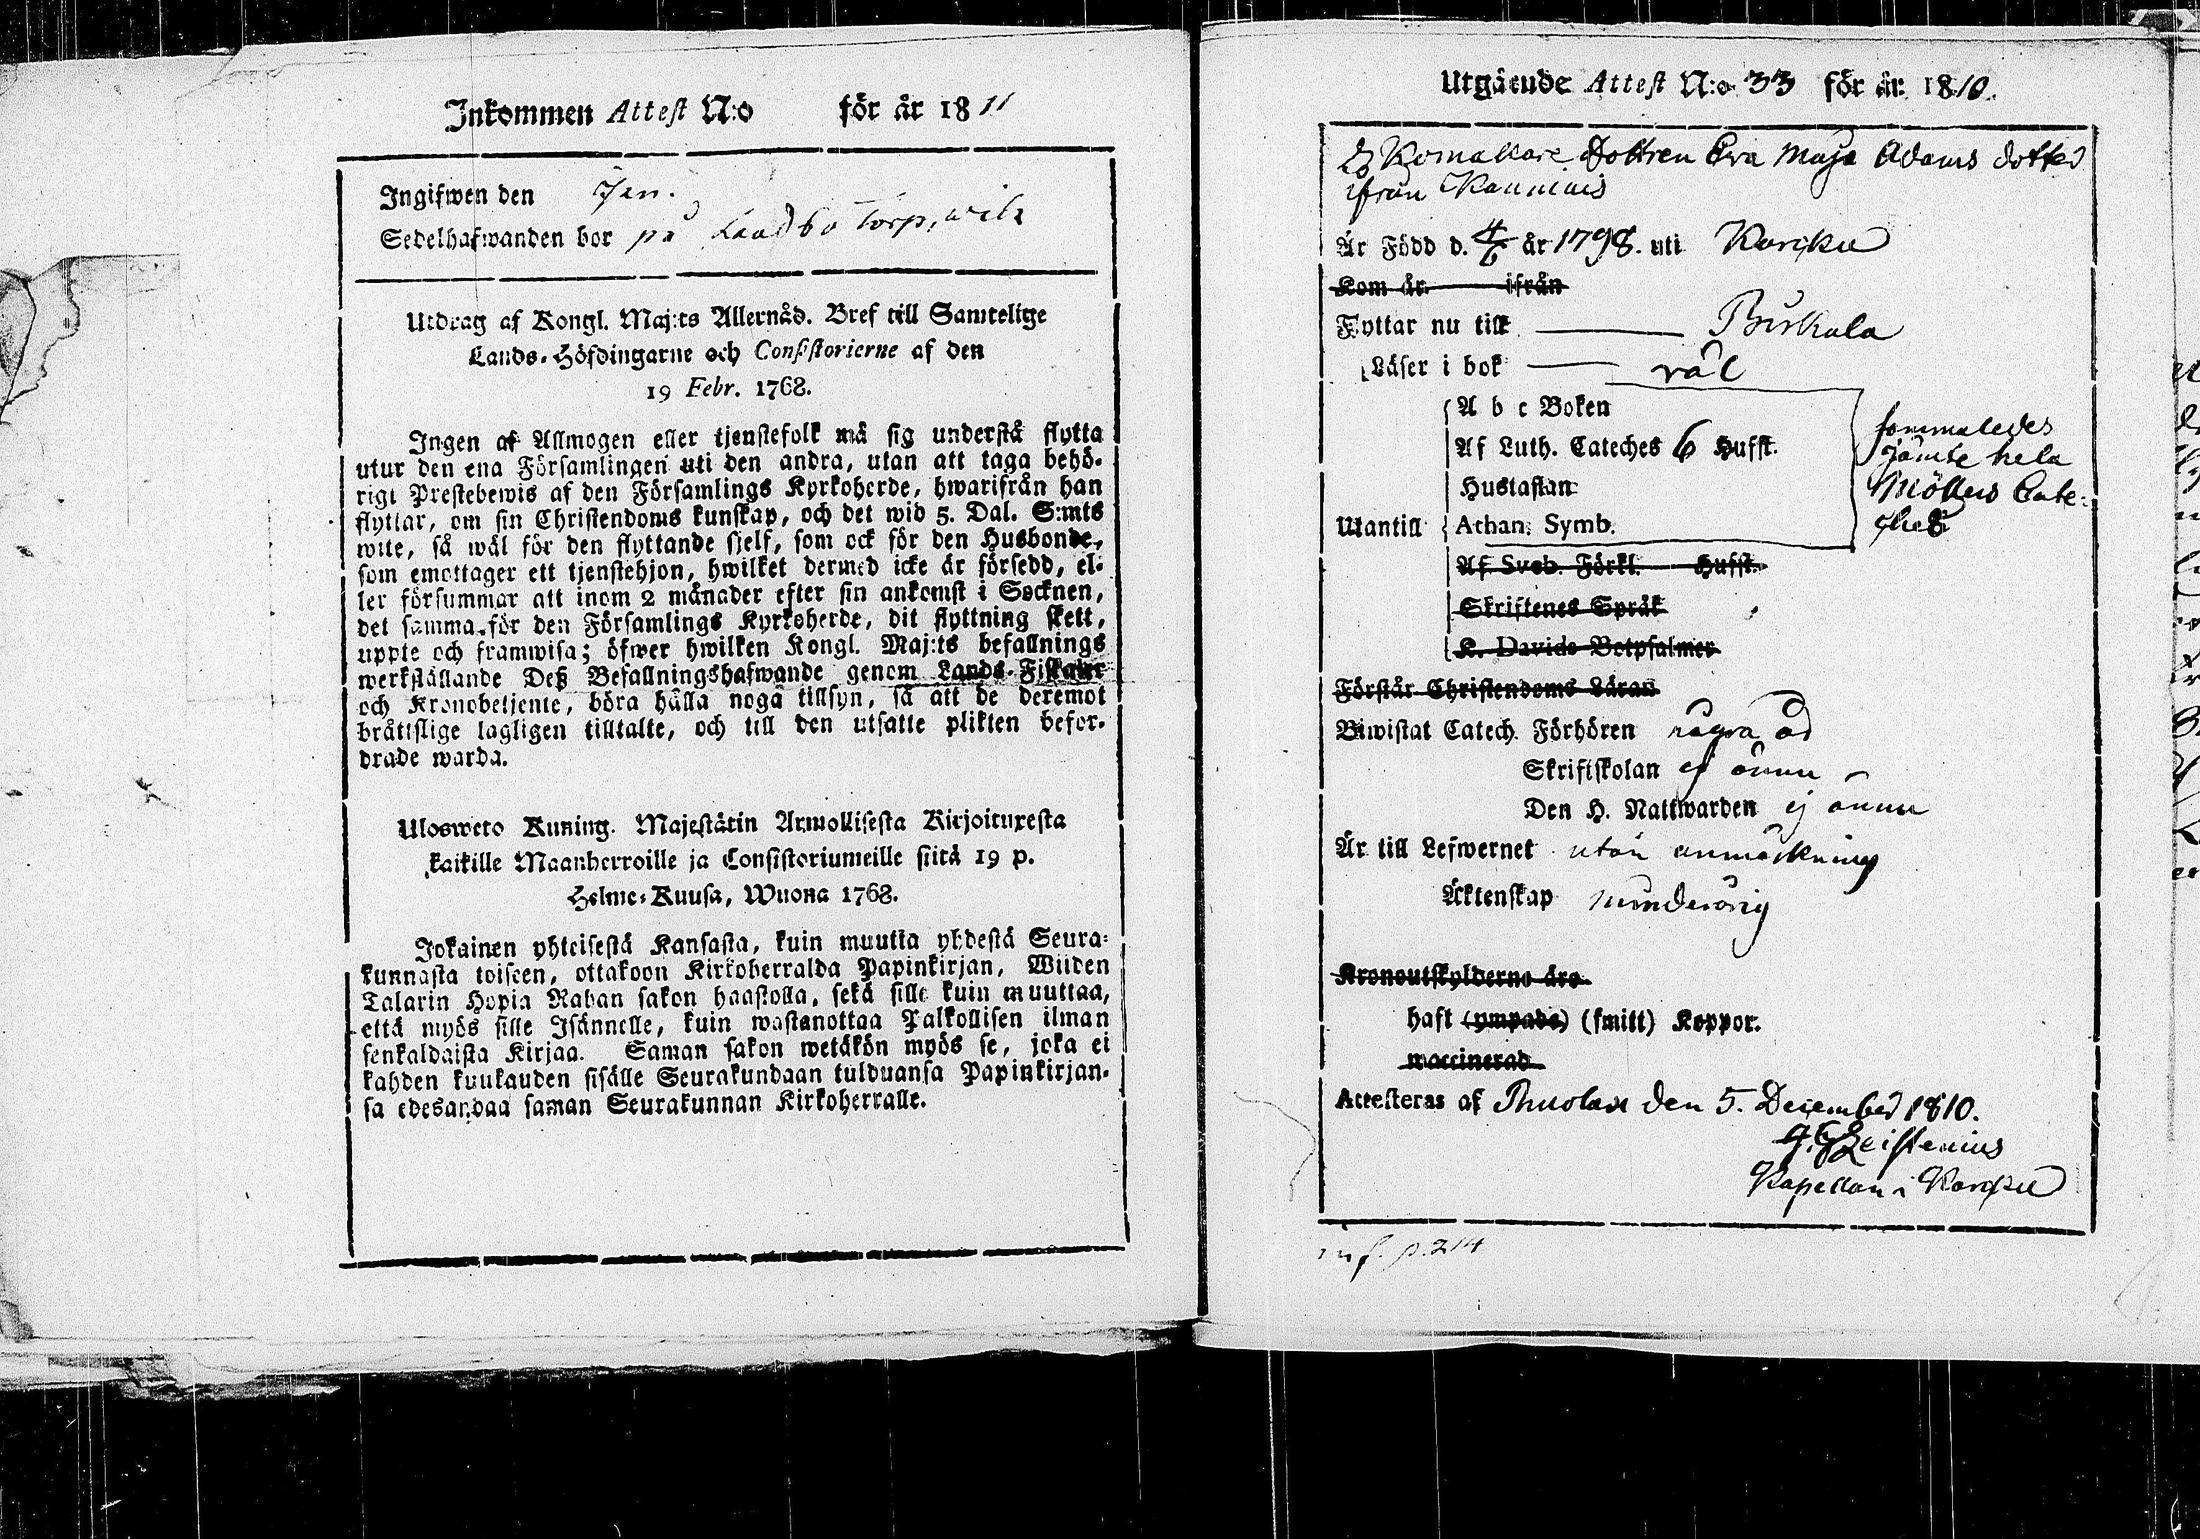 Inkommen Attest N:o för år 1811
Ingifwen den Jan.
Sedelhafwanden bor på Landbo torp,
Utdrag af Kongl. Maj:ts Allernåd. Bref till Samtelige
Lands-Höfdingarne och Consistorierne af den
19 Febr. 1768.
Ingen af Allmogen eller tjenstefolk må sig understå flytta
utur den ena Församlingen uti den andra, utan att taga behö-
rigt Prestebewis af den Församlings Kyrkoherde, hwarifrån han
flyttar, om sin Christendoms kunskap, och det wid 5. Dal. S:mts
wite, så wäl för den flyttande sjelf, som ock för den Husbonde,
som emottager ett tjenstehjon, hwilket dermed icke är försedd, el-
ler försummar att inom 2 månader efter sin ankomst i Socknen,
det samma för den Församlings Kyrkoherde, dit flyttning skett,
uppte och framwisa; öfwer hwilken Kongl. Maj:ts befallnings
werkställande Deß Befallningshafwande genom Lands-Fiskaler
och Kronobetjente, böra hålla noga tillsyn, så att de deremot
bråttslige lagligen tilltalte, och till den utsatte plikten befor-
drade warda.
Ulosweto Kuning. Majestätin Armollisesta Kirjoituxesta
kaikille Maanherroille ja Consistoriumeille siitä 19 p.
Helme-Kuusa, Wuona 1768.
Jokainen yhteisestä Kansasta, kuin muutta yhdestä Seura-
kunnasta toiseen, ottakoon Kirkoherralda Papinkirjan, Wiiden
Talarin Hopia Rahan sakon haastolla, sekä sille kuin muuttaa,
että myös sille Isännelle, kuin wastanottaa Palkollisen ilman
senkaldaista Kirjaa. Saman sakon wetäkön myös se, joka ei
kahden kuukauden sisälle Seurakundaan tulduansa Papinkirjan-
sa edesandaa saman Seurakunnan Kirkoherralle.
Utgående Attest N:o 33 för år 1810.
Dottren Eva Maja Adams dotter
ifrån Kauniais
Är Född d. 4/6 år 1798. uti Karcku
Kom år ifrån
Flyttar nu till Birkala
Läser i bok väl
A b c Boken
Af Luth. Cateches 6 Hufst.
Hustaflan
Utantill Athan. Symb.
Af Sveb. Förkl. Hufst.
Skriftenes Språk
K. Davids Botpsalmer
sammaledes
jämte hela
Möllers Cate-
ches
Förstår Christendoms Läran
Biwistat Catech. Förhören några år
Skriftskolan ej ännu
Den H. Nattwarden ej ännu
Är till Lefwernet utan anmärkning
Äktenskap minderårig
Kronoutskylderne äro
haft (ympade) (smitt) Koppor.
waccinerad
Attesteras af den 5. December 1810.
Zeistenius
Kapellan i Karcku
p. 214